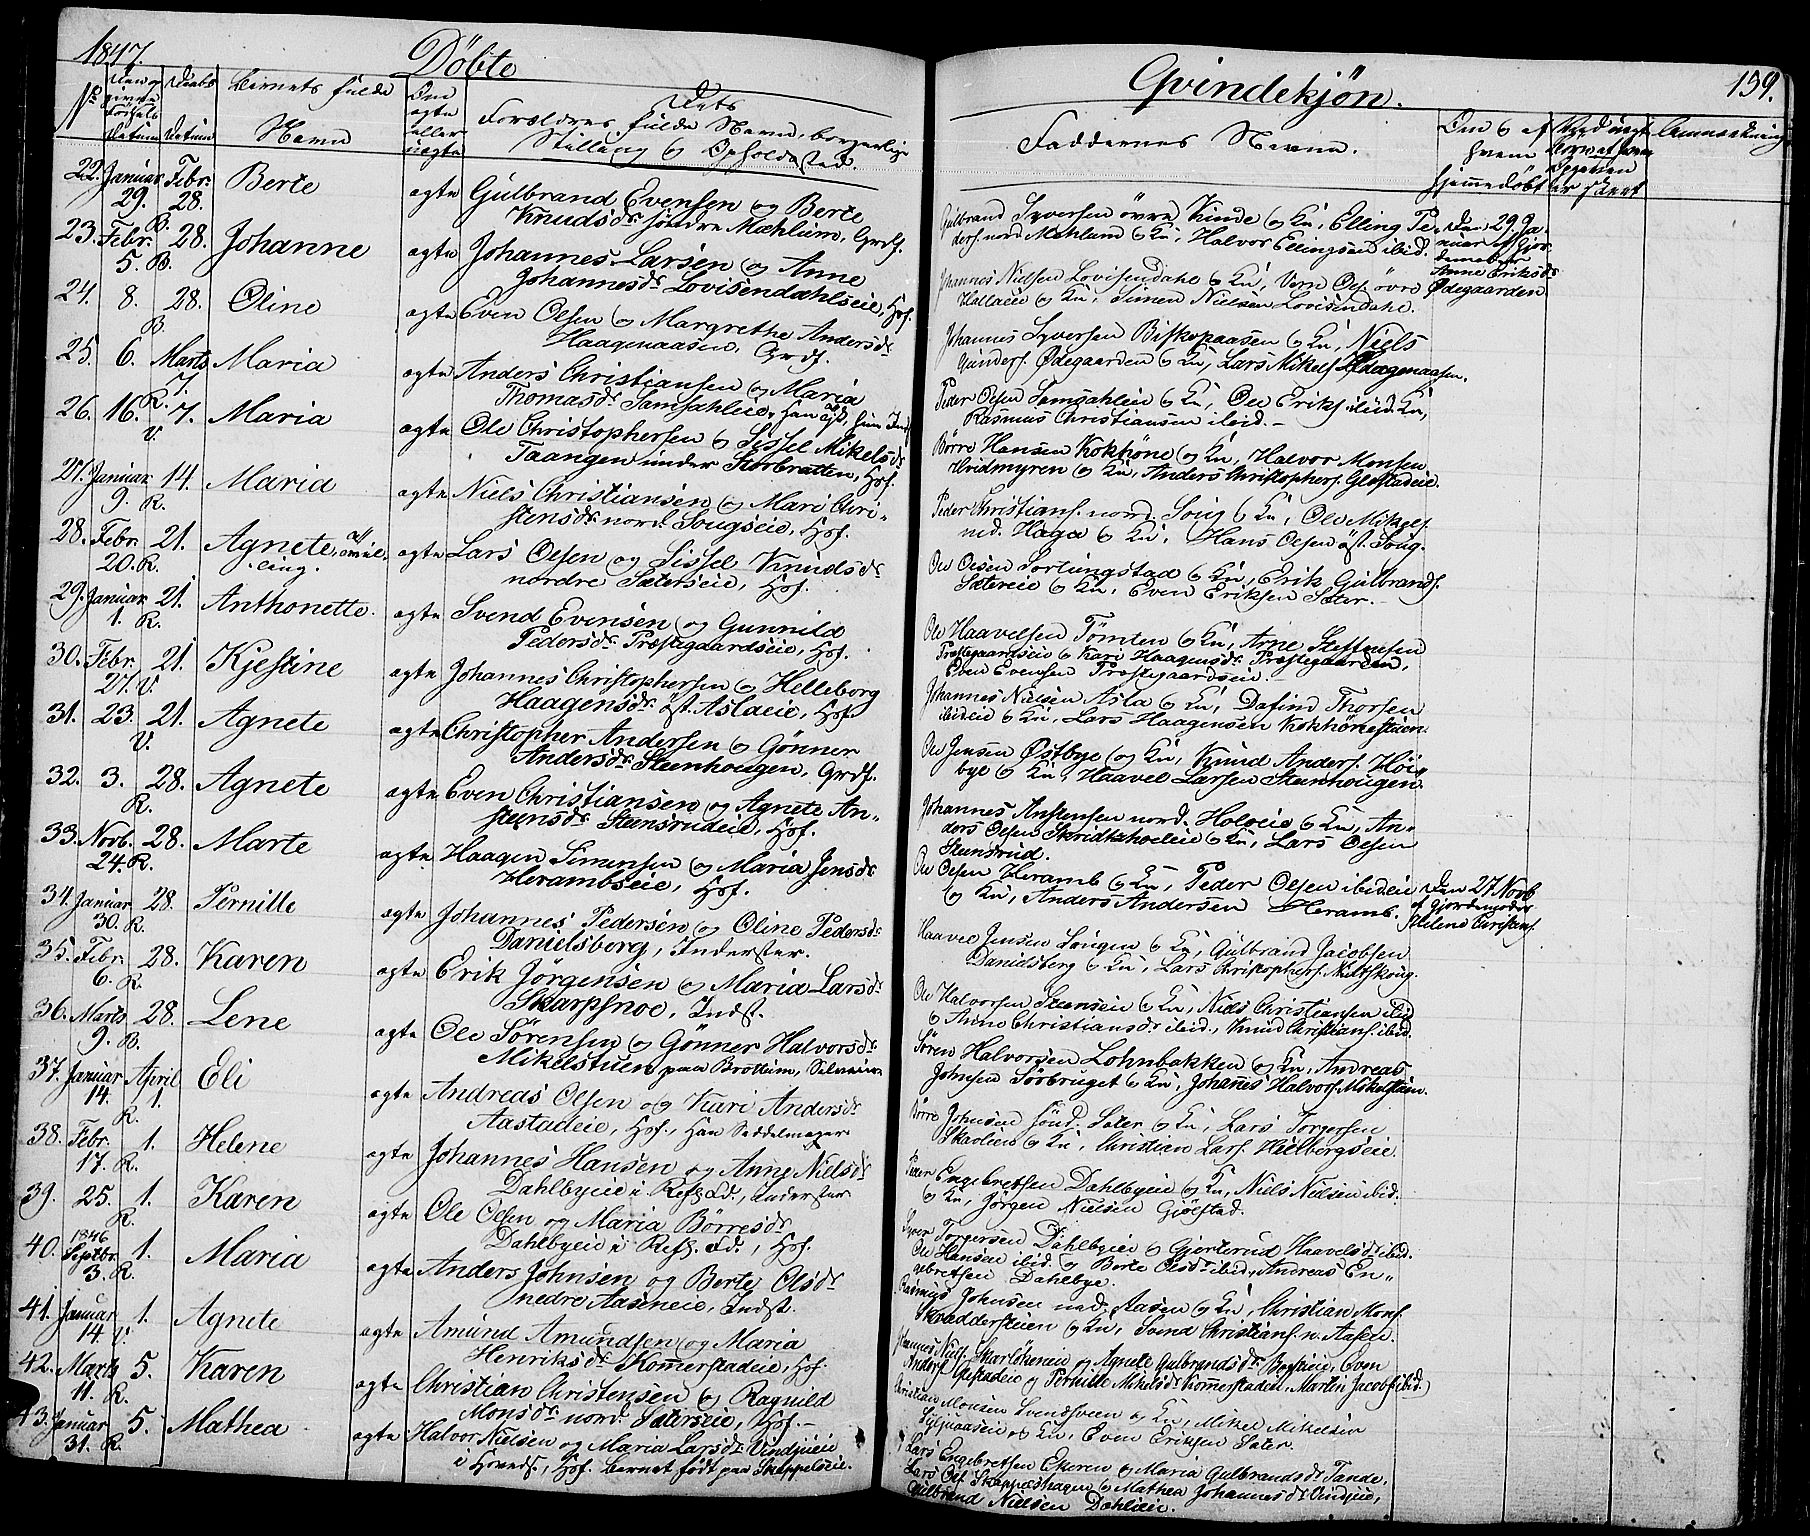 1847. Döbte Qvindekjön. 139.
No Aar og givne Födsels Datum Daabs Datum Barnets fulde Navn Om ægte eller uægte Dets Forældres fulde Navn, borgerlige Stilling og Opholdssted. Faddernes Navne. Om og af hvem hjemmedöbt Anmærkning
22. Januar 29. B. Febr. 28. Berte ægte Gulbrand Evensen og Berte
Knudsdr söndre Mæhlum, Grdf.
Gulbrand Syversen övre Kinde og Ku, Elling Pe-
ders. nord. Mæhlum og Ku, Halvor Ellingsen ibid.
Den 29 Ja-
nuar af Gjor-
demoder
Anne Eriksdr
Ödegaarden
23. Febr. 5. B. 28. Johanne ægte Johannes Larsen og Anne
Johannesdr Lovisendahlseie, Hof.
Johannes Nielsen Lovisendahl og Ku, Ole övre
og Ku, Simen Nielsen Lovisendahl.
24. 8. B. 28. Oline ægte Even Olsen og Margrethe Andersdr
Haagenaasen, Grdf.
Johannes Syversen Biskopaasen og Ku, Niels
Gunders. Ödegaarden og Ku, Lars Mikels. Haagenaasen.
25. 6. R. Marts 7. Maria ægte Anders Christiansen og Maria
Thomasdr Samsahleie,
Peder Olsen Samsahleie og Ku, Ole Eriks. ibid. Ku,
Rasmus Christiansen ibid.
26. 16. V. 7. Maria ægte Ole Christophersen og Sissel Mikelsdr
Taangen under Storbratten, Hof.
Börre Hansen Kokhöne og Ku, Halvor Monsen
Hvidmyren og Ku, Anders Christophers. Glestadeie.
27. Januar 9. R. 14. Maria ægte Niels Christiansen og Mari Chri-
stensdr nord. Sougseie, Hof.
Peder Christians. nord. Soug og Ku, Ole Mikels.
ned. Haga og Ku, Hans Olsen öst. Soug.
28. Febr. 20. R. 21. Agnete, ægte Lars Olsen og Sissel Knudsdr
nordre Sæterseie, Hof.
Ole Olsen Sorlungstad og Ku, Erik Gulbrands.
Sætereie og Ku, Even Eriksen Sæter.
29. Januar 1. R. 21. Anthonette. ægte Svend Evensen og Gunnild
Pedersdr Præstegaardseie, Hof.
Ole Haavelsen Tömten og Ku, Arne Steffensen
Præstegaardseie og Kari Haagensdr Præstegaarden,
Even Evensen Præstegaardseie.
30. Febr. 27. V. 21. Kjestine ægte Johannes Christophersen og Helleborg
Haagensdr öst. Aslaeie, Hof.
Johannes Nielsen Asla og Ku, Dafind Thorsen
ibideie og Ku, Lars Haagensen Kokhönestuen.
31. 23. V. 21. Agnete ægte Christopher Andersen og Gönner
Andersdr Steenhougen, Grdf.
Ole Jensen Östbye og Ku, Knud Anders. Höi-
bye og Ku, Haavel Larsen Steenhougen.
32. 3. R. 28. Agnete ægte Even Christiansen og Agnete An-
stensdr Steensrudeie, Hof.
Johannes Anstensen nord. Holveie og Ku, An-
ders Olsen Skridtshoeleie og Ku, Lars Olsen
Steensrud.
33. Novb. 24. R. 28. Marte ægte Haagen Simensen og Maria Jensdr
Herambseie, Hof.
Ole Olsen Heramb og Ku, Peder Olsen ibideie
og Ku, Anders Andersen Heramb.
Den 27 Novb.
af Gjordemoder
Helene Christians.
34. Januar 30. R. 28. Pernille ægte Johannes Pedersen og Oline Pedersdr
Danielsberg, Inderster.
Haavel Jensen Sougen og Ku, Gulbrand Jacobsen
Danielsberg og Ku, Lars Christophers. Meltskoug.
35. Febr. 6. R. 28. Karen ægte Erik Jörgensen og Maria Larsdr
Skarpsnoe, Indst.
Ole Halvorsen Steenseie og Ku, Niels Christiansen ibid
og Anne Christiansdr ibid., Knud Christians. ibid.
36. Marts 9. B. 28. Lene ægte Ole Sörensen og Gönner Halvorsdr
Mikelstuen paa Brottum,
Sören Halvorsen Lohnbakken og Ku, Andreas
Johnsen Sörbruget og Ku, Johanes Halvors. Mikelstuen.
37. Januar 14. R. April 1. Eli ægte Andreas Olsen og Kari Andersdr
Aastadeie, Hof., Han Saddelmager
Börre Johnsen sönd. Sæter og Ku, Lars Torgersen
Skaolien og Ku, Christian Lars. Hielborgseie.
38. Febr. 17. R. 1. Helene ægte Johannes Hansen og Anne Nielsdr
Dahlbyeie i Refs. Fd., Inderster
Peder Engebretsen Dahlbyeie og Ku, Niels Nielsen ibid.
og Ku, Jörgen Nielsen Gjölstad.
39. 25. R. 1. Karen ægte Ole Olsen og Maria Börresdr
Dahlbyeie i Refs. Fd., Hof.
Syver Torgersen Dahlbyeie og Gjertrud Haavelsdr ibid.
Ole Hansen ibid. og Berte Olsdr ibid., Andreas En-
gebretsen Dahlbye.
40. 1846 Septbr. 3. R. 1. Maria ægte Anders Johnsen og Berte Olsdr
nedre Aasneie, Indst.
Rasmus Johnsen ned. Aasen og Ku, Christian Mons.
Skräddersteien og Ku, Svend Christians. n. Aasen.
41. Januar 14. V. 1. Agnete ægte Amund Amundsen og Maria
Henriksdr Komerstadeie, Hof.
Johannes Niels. Skarlökeneie og Agnete Gulbrandsdr Berseie, Even
Anders. Gjestadeie og Pernille Mikelsdr Komerstadeie, Martin Jacobs. ibid.
42. Marts 11. R. 5. Karen ægte Christian Christensen og Ragnild
Monsdr nord. Sæterseie, Hof.
Christian Monsen Svendsveen og Ku, Mikel Mikelsen
Syljuaasen og Ku, Even Eriksen Sæter.
43. Januar 31. R. 5. Mathea ægte Halvor Nielsen og Maria Larsdr Vindjueie
i Hoveds., Hof. Barnet födt paa Skappelseie.
Lars Engebretsen Ekeren og Maria Gulbrandsdr Tande,
Lars Ols. Skappelshagen og Mathea Johannesdr Vindjueie,
Gulbrand Nielsen Dahlieie.